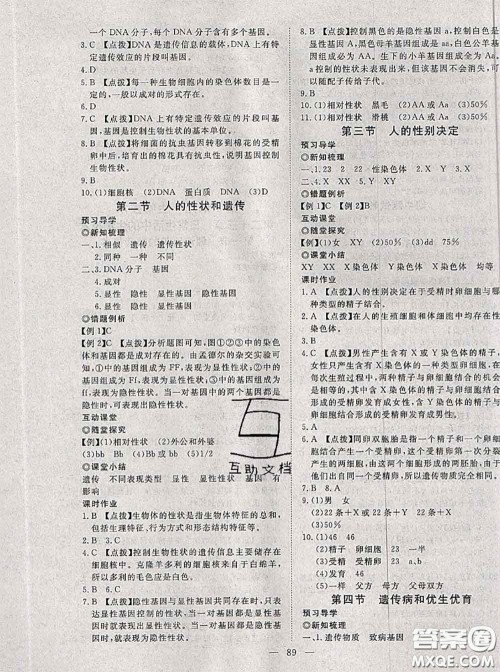 一个 DNA 分子，每个 DNA 分子含有多个基因。
3. C 【点拨】DNA 是遗传信息的载体，DNA 上有特
定遗传效应的片段叫基因。
4. D
5. B 【点拨】每一种生物细胞内的染色体数目是一
定的，一般以成对的形式存在。
6. B
7. B 【点拨】DNA 上有特定遗传效应的片段叫基
因，基因是控制生物性状的基本单位。
8. B 【点拨】将细菌的抗虫基因转移到棉花的受精
卵中，培育出的棉花具有抗虫性状，说明基因控制
生物性状。
9. B
10. (1)细胞核 (2)DNA 蛋白质 (3)D
第二节 人的性状和遗传
预习导学
◎新知梳理
一、1. 相似 遗传 遗传性状
2. 同种 同一 不同
二、3. DNA 分子 基因
4. 成对
5. 显性 隐性 显性基因 隐性基因
6. 显性 隐性 显性 隐性
◎错题例析
【例 1】C
【例 2】C 【点拨】分析题图可知：图①②③中的染色
体和基因都是成对的，由孟德尔的杂交实验可知：
①中的基因组成为 FF，表现为显性性状；②中的基
因组成为 Ff，表现为显性性状；③中的基因组成为
ff，表现为隐性性状。当一对基因的两个基因都是
隐性时，可表现出隐性性状。
互动课堂
◎随堂探究
【例】(1)相对性状 (2)外公和外婆
(3)bb Bb (4)Bb 或 bb (5)1/2
◎课堂小结
遗传 不同表现类型 显性 遗传 显性 基因 有
影响
课时作业
1. B 【点拨】生物体的性状是指生物体特征的总和，
包括生理特征、行为方式和形态结构特征等。
2. D
3. C
4. A 【点拨】控制生物性状的遗传信息主要储存在
细胞核中。克隆羊多利的细胞核来自于白绵羊，
所以多利表现出的体色为白色。
5. B 6. C
7. A 【点拨】显性基因控制显性性状，隐性基因控制
隐性性状。当一对基因中一个是显性，一个是隐
性时，显示显性基因控制的性状。
8. B 【点拨】控制黑色的是隐性基因 a，控制白色的
是显性基因 A，黑色母羊基因组成是 aa，白色公羊
基因组成是 AA，生下的小羊基因组成是 Aa，基因
a 控制的性状未表现出来，但该基因并未消失，可
以随配子传给子代。
9. B
10. (1)相对性状 黑毛 (2)AA 或 Aa (3)50%
11. (1)相对性状 滑桃 (2)AA 或 Aa (3)50%
第三节 人的性别决定
预习导学
◎新知梳理
一、1. 23 2 22 性染色体 2. X Y X
二、3. XX XY 4. X Y X
◎错题例析
【例 1】C 【例 2】B
互动课堂
◎随堂探究
【例】(1)女 XY (2)50% (3)dd 75%
◎课堂小结
XY XX 染色体 染色体 相等
课时作业
1. A 【点拨】人的性别决定在于受精时卵细胞与哪
种类型的精子结合。
2. A 【点拨】在人的生殖细胞和体细胞中都有性染
色体。
3. C 【点拨】男性产生含有 X 或 Y 染色体的两种类
型的精子细胞，女性只产生含有 X 染色体的一种
类型的卵细胞，这两种精子与卵细胞结合的机会
是均等的，其中含 X 染色体的精子与卵细胞结合
形成的受精卵发育成女性，含 Y 染色体的精子与
卵细胞结合形成的受精卵发育成男性。
4. A 5. C 6. B
7. A 【点拨】同卵双胞胎是指一个精子和一个卵细
胞结合形成一个受精卵，这个受精卵一分为二，
产生两个胚胎。由于他们出自同一个受精卵，接
受完全一样的染色体和基因，因此他们性别相同。
染色体组成是相同的。异卵双胞胎是由两个受精
卵产生的，细胞中的染色体组成不一定相同。
8. A
9. (1)男 女
(2)22 条＋X 22 条＋X 或 22 条＋Y
10. (1)46 46
(2)精子 卵细胞 23 一半
(3)受精卵 23 23
(4)发育 46
(5)一样 父方 母方 父方 母方
第四节 遗传病和优生优育
预习导学
◎新知梳理
一、1. 遗传物质 致病基因
— 89 —
互助文档
答案圈
MXQE.COM